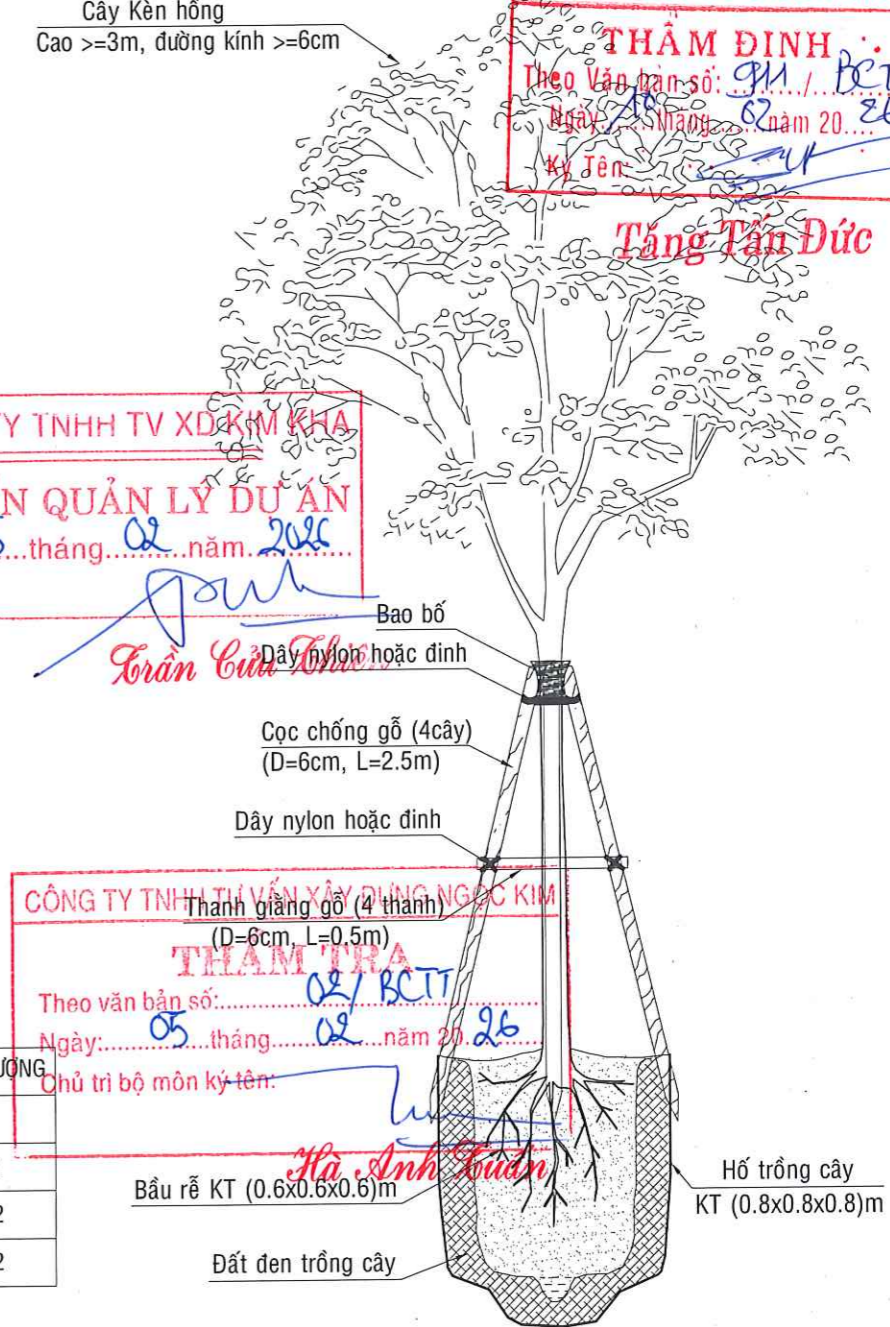 Cây Kèn hồng
Cao >=3m, đường kính >=6cm
THẨM ĐỊNH
Theo Văn bản số: 911 / BCT
Ngày 10 tháng 02 năm 2026
Ký Tên:
Tăng Tấn Đức
TY TNHH TV XD KIM KHA
N QUẢN LÝ DỰ ÁN
tháng 02 năm 2026
Trần Cửu
Bao bố
Dây nylon hoặc đinh
Cọc chống gỗ (4cây)
(D=6cm, L=2.5m)
Dây nylon hoặc đinh
CÔNG TY TNHH TƯ VẤN XÂY DỰNG NGỌC KIM
Thanh giằng gỗ (4 thanh)
(D=6cm, L=0.5m)
THẨM TRA
Theo văn bản số: 02/ BCTT
Ngày: 05 tháng 02 năm 20 26
Chủ trì bộ môn ký tên:
ƯỢNG
Hà Anh Xuân
Bầu rễ KT (0.6x0.6x0.6)m
Hố trồng cây
KT (0.8x0.8x0.8)m
2
2
Đất đen trồng cây